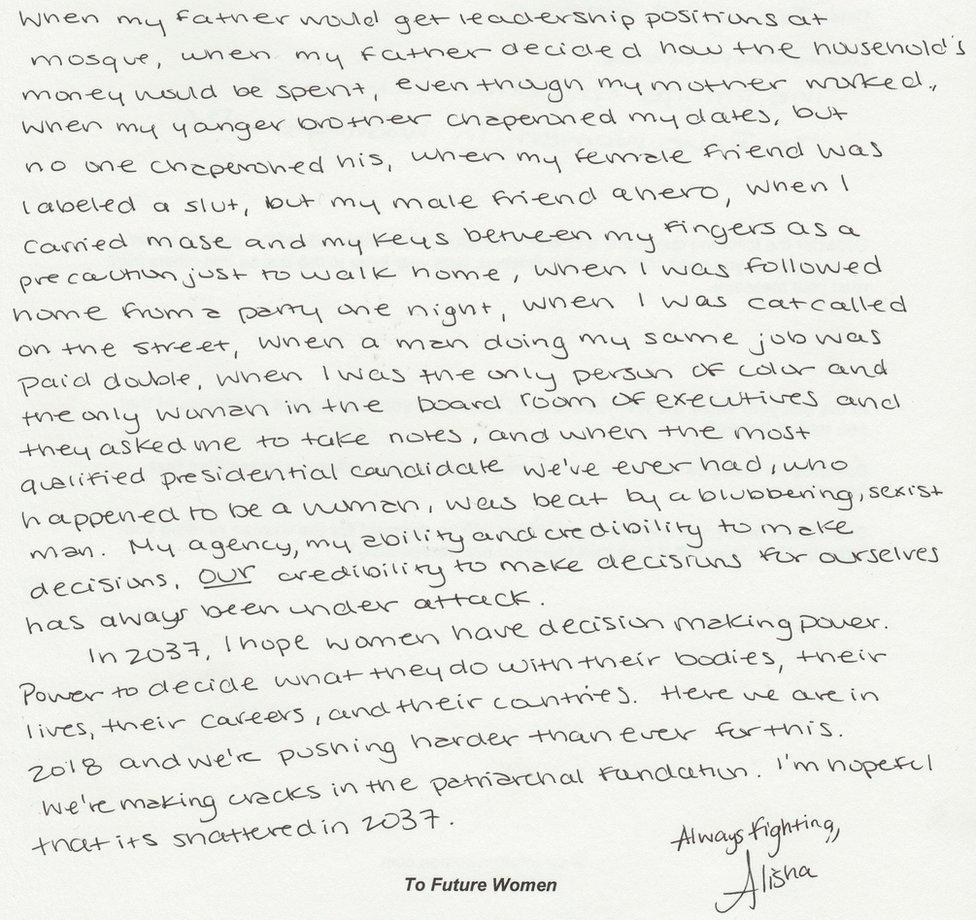 When my father would get leadership positions at
mosque, when my father decided how the household's
money would be spent, even though my mother worked.,
when my yanger brother chaperoned my dates, but
no one chaperoned his, when my female friend was
labeled a slut, but my male friend a hero, when I
carried mase and my keys between my fingers as a
precaution just to walk home, when I was followed
home from a party one night, when I was catcalled
on the street, when a man doing my same job was
paid double, when I was the only person of color and
the only woman in the board room of executives and
they asked me to take notes, and when the most
qualified presidential candidate we've ever had, who
happened to be a woman, was beat by a blubbering, sexist
man. My agency, my ability and credibility to make
decisions, our credibility to make decisions for ourselves
has aways been under attack.
In 2037, I hope women have decision making power.
Power to decide what they do with their bodies, their
lives, their careers, and their contries. Here we are in
2018 and we're pushing harder than ever for this.
We're making cracks in the patriarchal fundation. I'm hopeful
that its shattered in 2037.
Always fighting,
Alisha
To Future Women